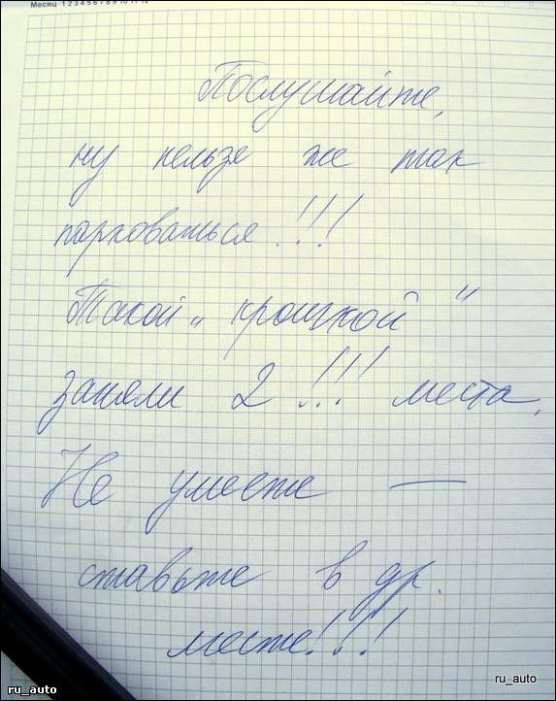 Месяц 1 2 3 4 5 6 7 8 9 10 11 12
Послушайте,
ну нельзе же так
парковаться!!!
Такой „крошкой"
заняли 2!!! места.
Не умеете —
ставьте в др.
месте!!!
ru_auto
ru_auto